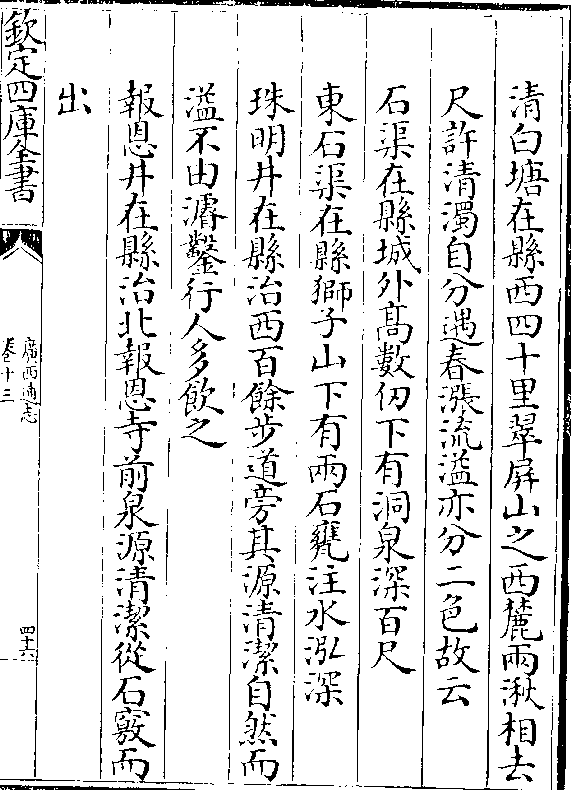 清白塘在縣西四十里翠屏山之西麓兩湫相去
尺許清濁自分遇春漲流溢亦分二色故云
石渠在縣城外髙數仞下有洞泉深百尺
東石渠在縣獅子山下有兩石甕注水泓深
珠明井在縣治西百餘步道旁其源清潔自然而
溢不由濬鑿行人多飲之
報恩井在縣治北報恩寺前泉源清潔從石竅而
出
欽定四庫全書
廣西通志
卷十三
四十六